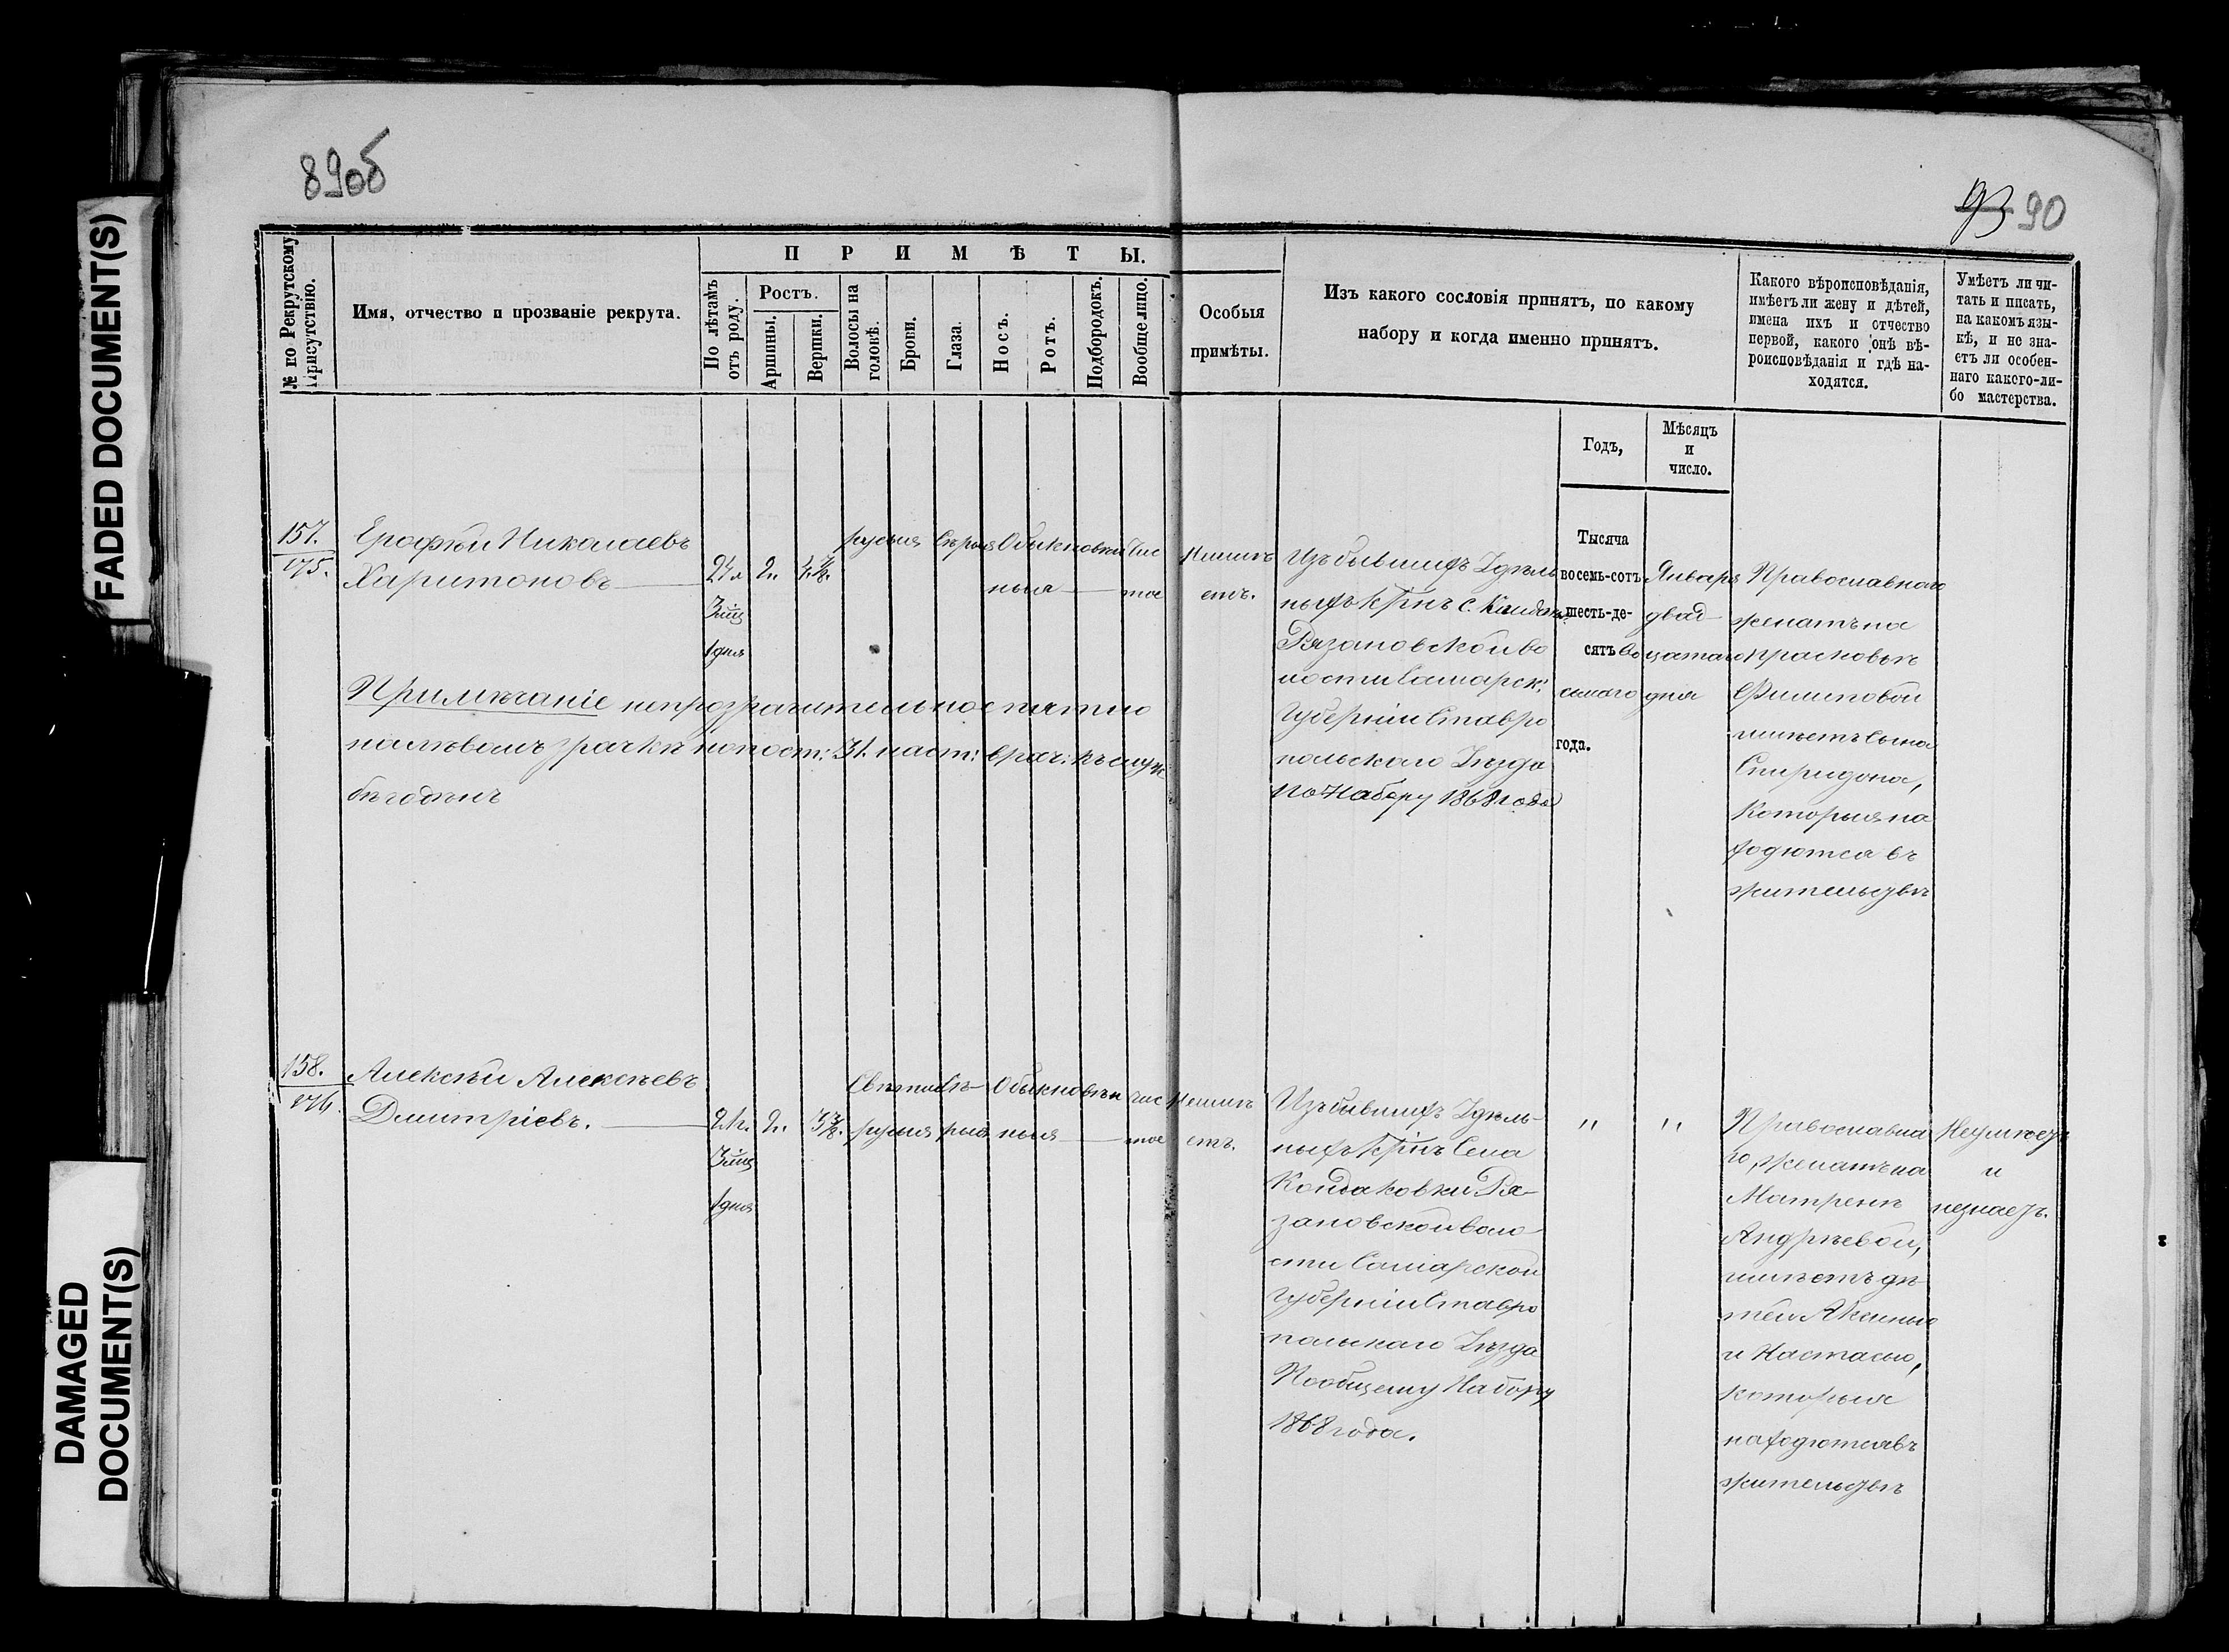 FADED DOCUMENT(S)
DAMAGED
DOCUMENT(S)
89об
93 90
№ по Рекрутскому
Присутствію.
Имя, отчество и прозваніе рекрута.
ПРИМѢТЫ.
По лѣтамъ
отъ роду.
Ростъ.
Аршины.
Вершки.
Волосы на
головѣ.
Брови.
Глаза.
Носъ.
Ротъ.
Подбородокъ.
Вообще лицо.
Особыя
примѣты.
Изъ какого сословія принятъ, по какому
набору и когда именно принятъ.
Какого вѣроисповѣданія,
имѣетъ ли жену и дѣтей,
имена ихъ и отчество
первой, какого онѣ вѣ-
роисповѣданія и гдѣ на-
ходятся.
Умѣетъ ли чи-
тать и писать,
на какомъ язы-
кѣ, и не зна-
етъ ли особен-
наго какого-ли-
бо мастерства.
Годъ,
Мѣсяцъ
и
число.
157.
175.
Ерофѣй Николаевъ
Харитоновъ
21 л
3 мц
1 дня
2.
4 7/8.
русыя
Сѣрыя
Обыкновен
ныя
Чис
тое
Неимѣ
етъ.
Изъ бывшихъ Удѣль
ныхъ Крнъ с. Кандак
Рязановской во
лости Самарск:
Губерніи Ставро
польскаго Уѣзда
по Набору 1868 года
Тысяча
восемь-сотъ
шесть-де-
сятъ во
сьмаго
года.
Января
двад
цатаго
дня
Православнаго
женатъ на
Прасковьѣ
Филиповой
имѣетъ Сына
Спиридона,
Которыя на
ходются въ
жительствѣ
Примѣчаніе непрозрачительное пятно
на лѣвомъ зрачкѣ по пост: 31. наст: врач: къ служ
бѣ годенъ
158.
176.
Алексѣй Алексѣевъ
Дмитріевъ.
21 л.
3 мц
1 дня
2.
3 7/8.
Свѣтло
русыя
Сѣ-
рыя
Обыкновен
ныя
чис
тое
Неимѣ
етъ.
Изъ бывшихъ Удѣль-
ныхъ Крнъ Села
Кондаковки Ря-
зановской воло-
сти Самарской
Губерніи Ставро
польскаго Уѣзда
По общему Набору
1868 года.
"
"
Православна
го, женатъ на
Матренѣ
Андрѣевой,
имѣетъ дѣ
тей Аксинью
и Настасью,
которыя
находются въ
жительствѣ
Неумѣетъ
и
незнаетъ.